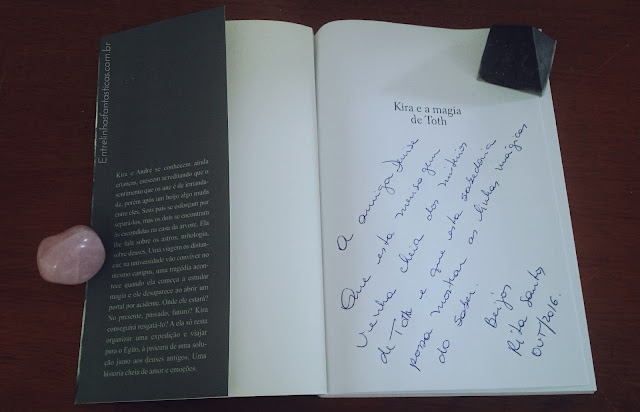 Entrelinhasfantasticas.com.br
Kira e André se conhecem ainda
crianças, crescem acreditando que o
sentimento que os une é de irmanda-
de, porém após um beijo algo muda
entre eles. Seus pais se esforçam por
separá-los, mas os dois se encontram
às escondidas na casa da árvore. Ela
lhe fala sobre os astros, astrologia,
sobre deuses. Uma viagem os distan-
cia; na universidade vão conviver no
mesmo campus, uma tragédia acon-
tece quando ela começa a estudar
magia e ele desaparece ao abrir um
portal por acidente. Onde ele estará?
No presente, passado, futuro? Kira
conseguirá resgatá-lo? A ela só resta
organizar uma expedição e viajar
para o Egito, à procura de uma solu-
ção junto aos deuses antigos. Uma
história cheia de amor e emoções.
Kira e a magia
de Toth
A amiga Denise
Que esta mensagem
venha cheia dos mistérios
de Toth e que esta sabedoria
possa mostrar as linhas mágicas
do saber.
Beijos
Rita Santos
OUT/2016.